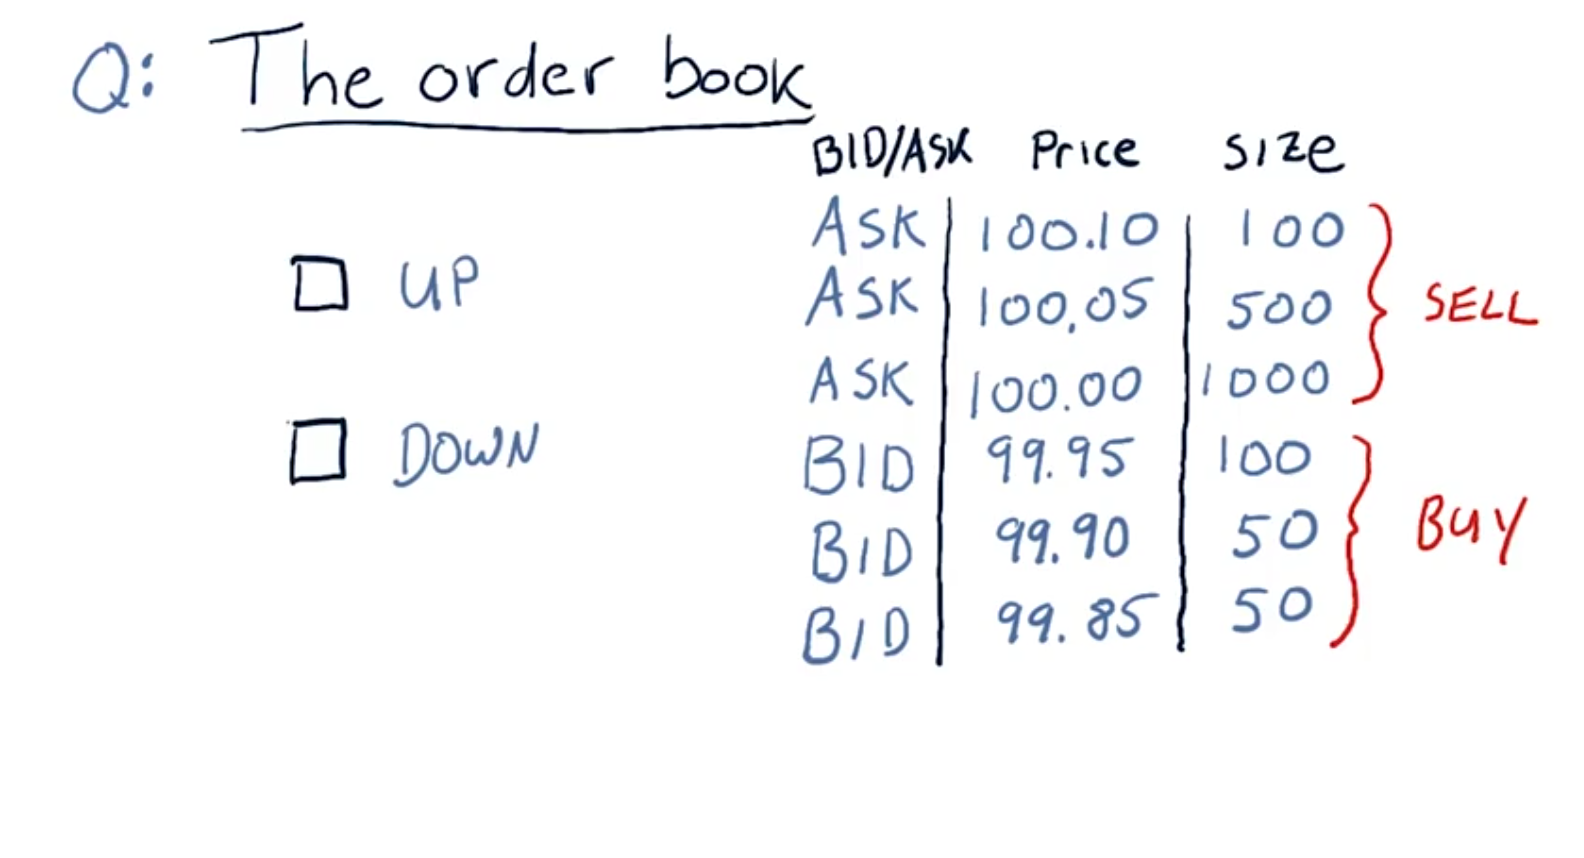 Q: The order book
BID/ASK Price SIZE
ASK 100.10 100
ASK 100.05 500
ASK 100.00 1000
BID 99.95 100
BID 99.90 50
BID 99.85 50
SELL
BUY
UP
DOWN